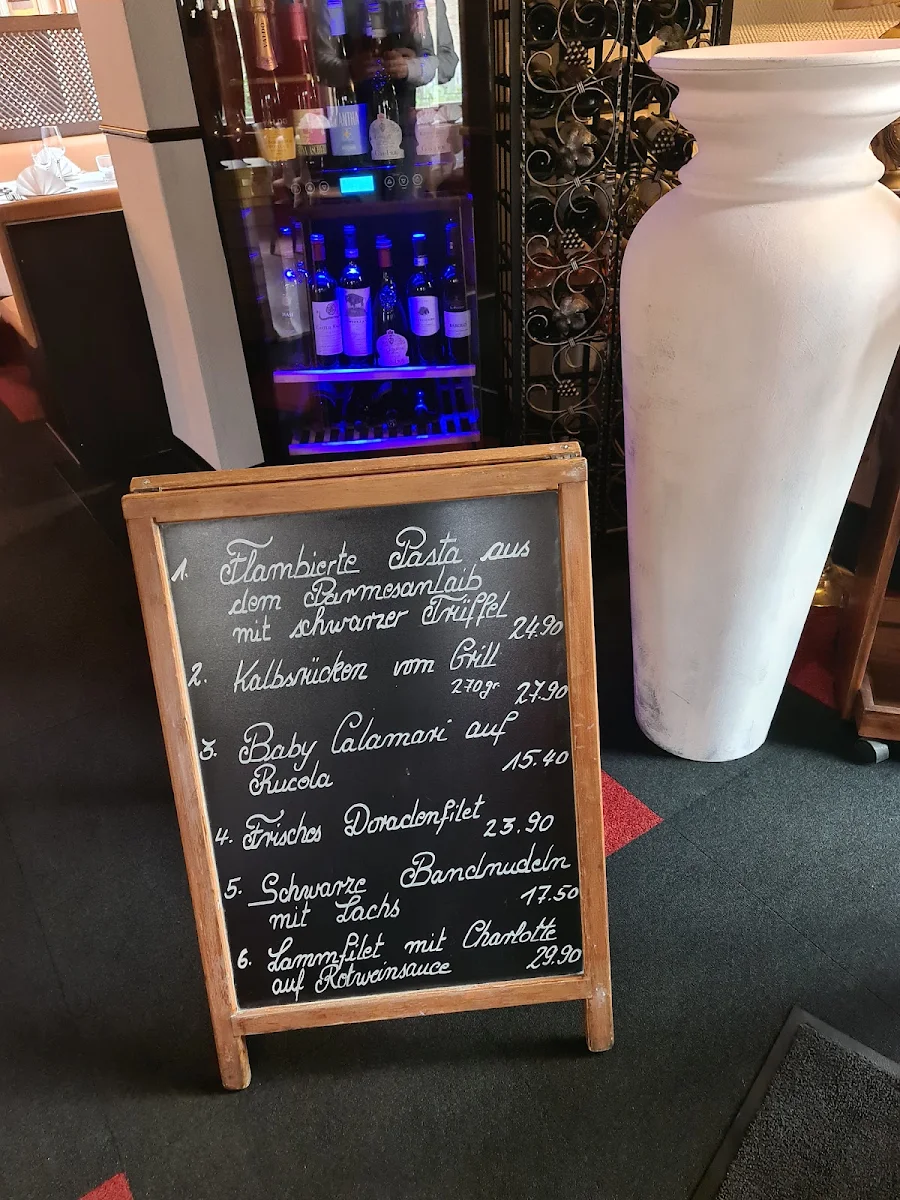 1. Flambierte Pasta aus
dem Parmesanlaib
mit schwarzer Trüffel
24.90
2. Kalbsrücken vom Grill
270gr 27.90
3. Baby Calamari auf
Rucola 15.40
4. Frisches Doradenfilet
23.90
5. Schwarze Bandnudeln
mit Lachs 17.50
6. Lammfilet mit Charlotte
auf Rotweinsauce 29.90